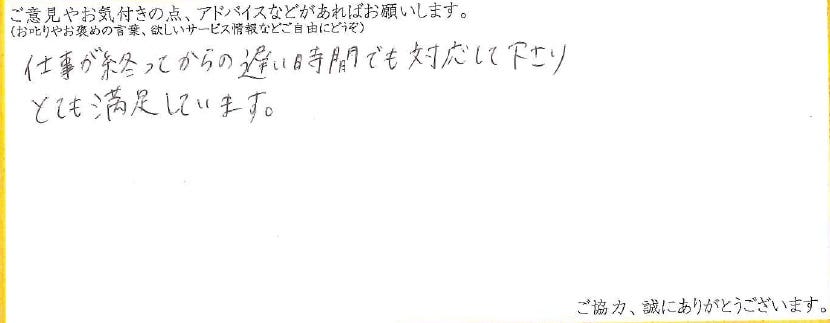 ご意見やお気付きの点、アドバイスなどがあればお願いします。
(お叱りやお褒めの言葉、欲しいサービス情報などご自由にどうぞ)
仕事が終ってからの遅い時間でも対応して下さり
とても満足しています。
ご協力、誠にありがとうございます。